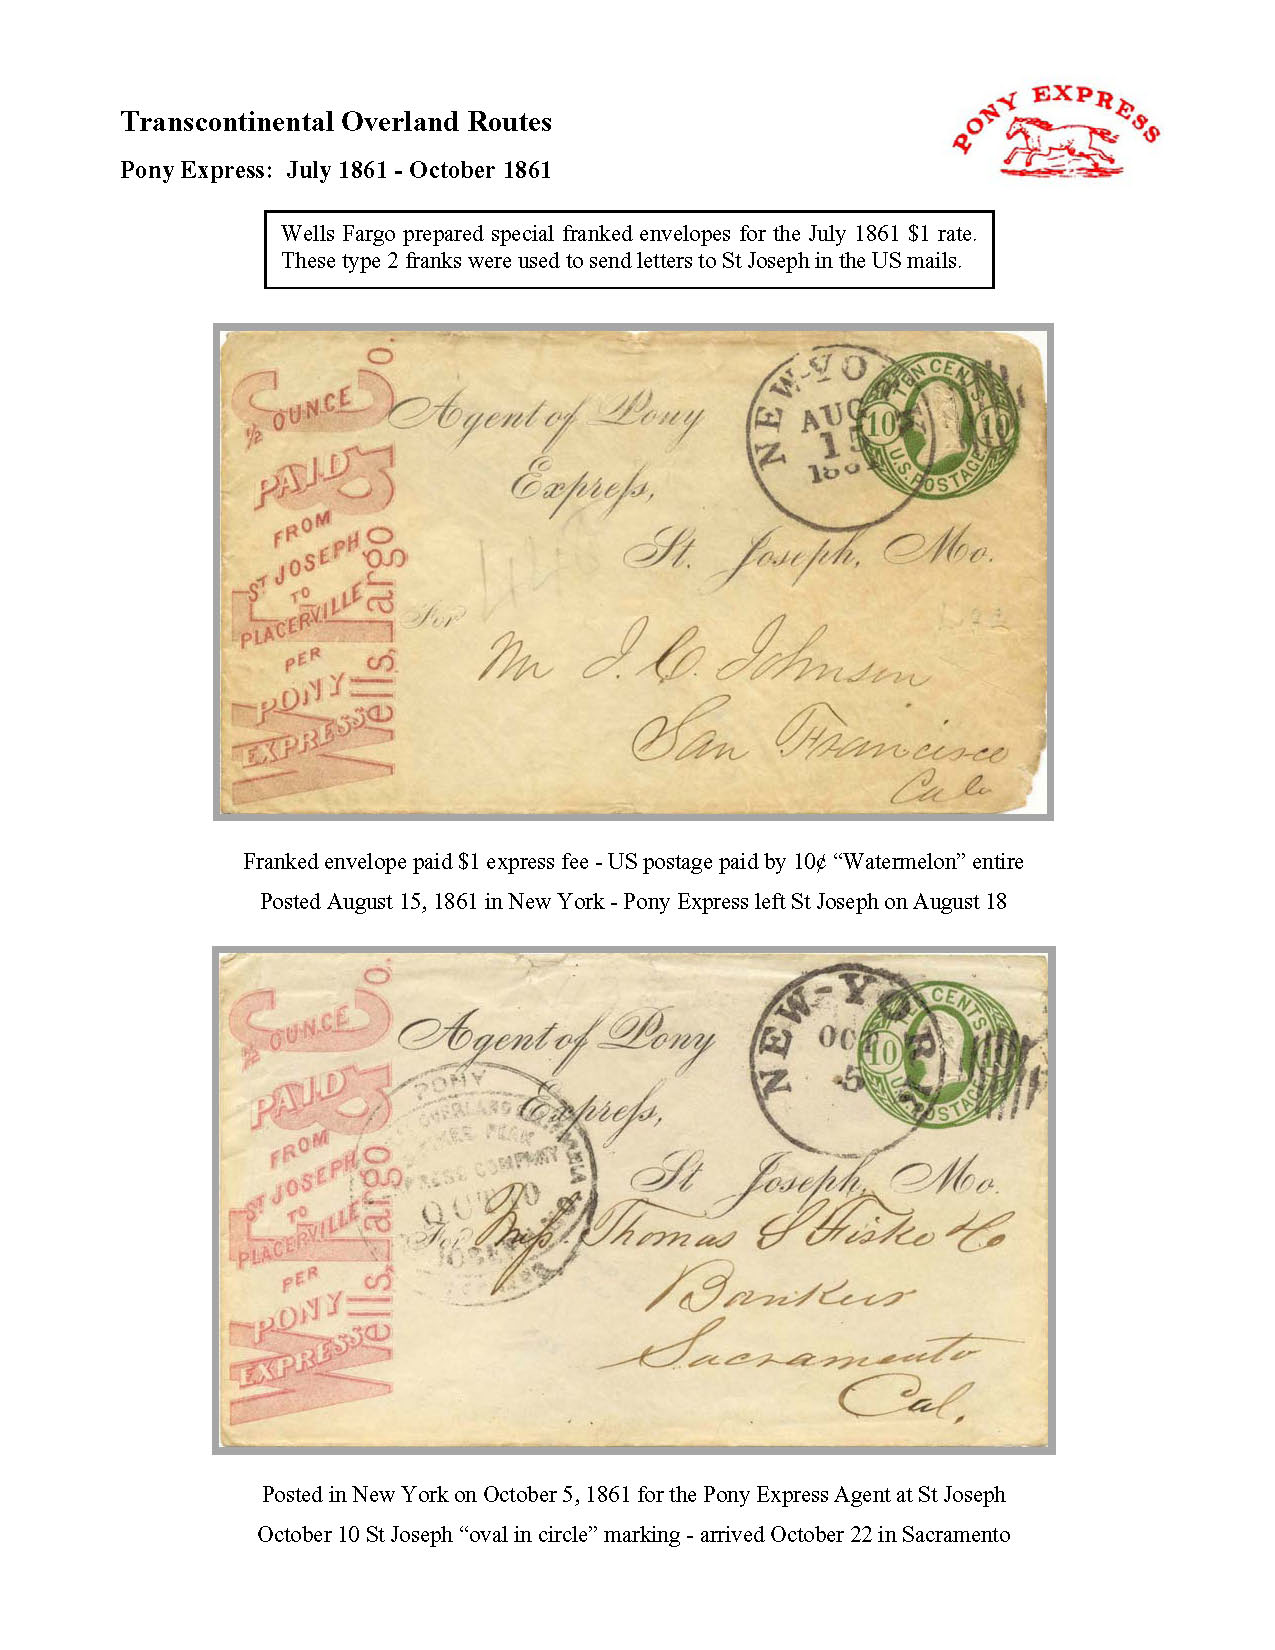 Transcontinental Overland Routes
PONY EXPRESS
Pony Express:  July 1861 - October 1861
Wells Fargo prepared special franked envelopes for the July 1861 $1 rate.
These type 2 franks were used to send letters to St Joseph in the US mails.
Wells, Fargo & Co.
½ OUNCE
PAID
FROM
ST JOSEPH
TO
PLACERVILLE
PER
PONY
EXPRESS
Agent of Pony
Express,
St. Joseph, Mo.
For
Mr J. C. Johnson
San Francisco
Cala
NEW-YO
AUG
15
1861
TEN CENTS
10 10
U.S. POSTAGE
Franked envelope paid $1 express fee - US postage paid by 10¢ “Watermelon” entire
Posted August 15, 1861 in New York - Pony Express left St Joseph on August 18
Wells, Fargo & Co.
½ OUNCE
PAID
FROM
ST JOSEPH
TO
PLACERVILLE
PER
PONY
EXPRESS
Agent of Pony
Express,
St Joseph, Mo.
For Mess. Thomas S Fiske & Co
Bankers
Sacramento
Cal.
NEW-YOR
OCT
5
CENTS
10
U.S. POSTAGE
PONY
OVERLAND
PIKES PEAK
EXPRESS COMPANY
OCT 10
JOSEPH
Posted in New York on October 5, 1861 for the Pony Express Agent at St Joseph
October 10 St Joseph “oval in circle” marking - arrived October 22 in Sacramento